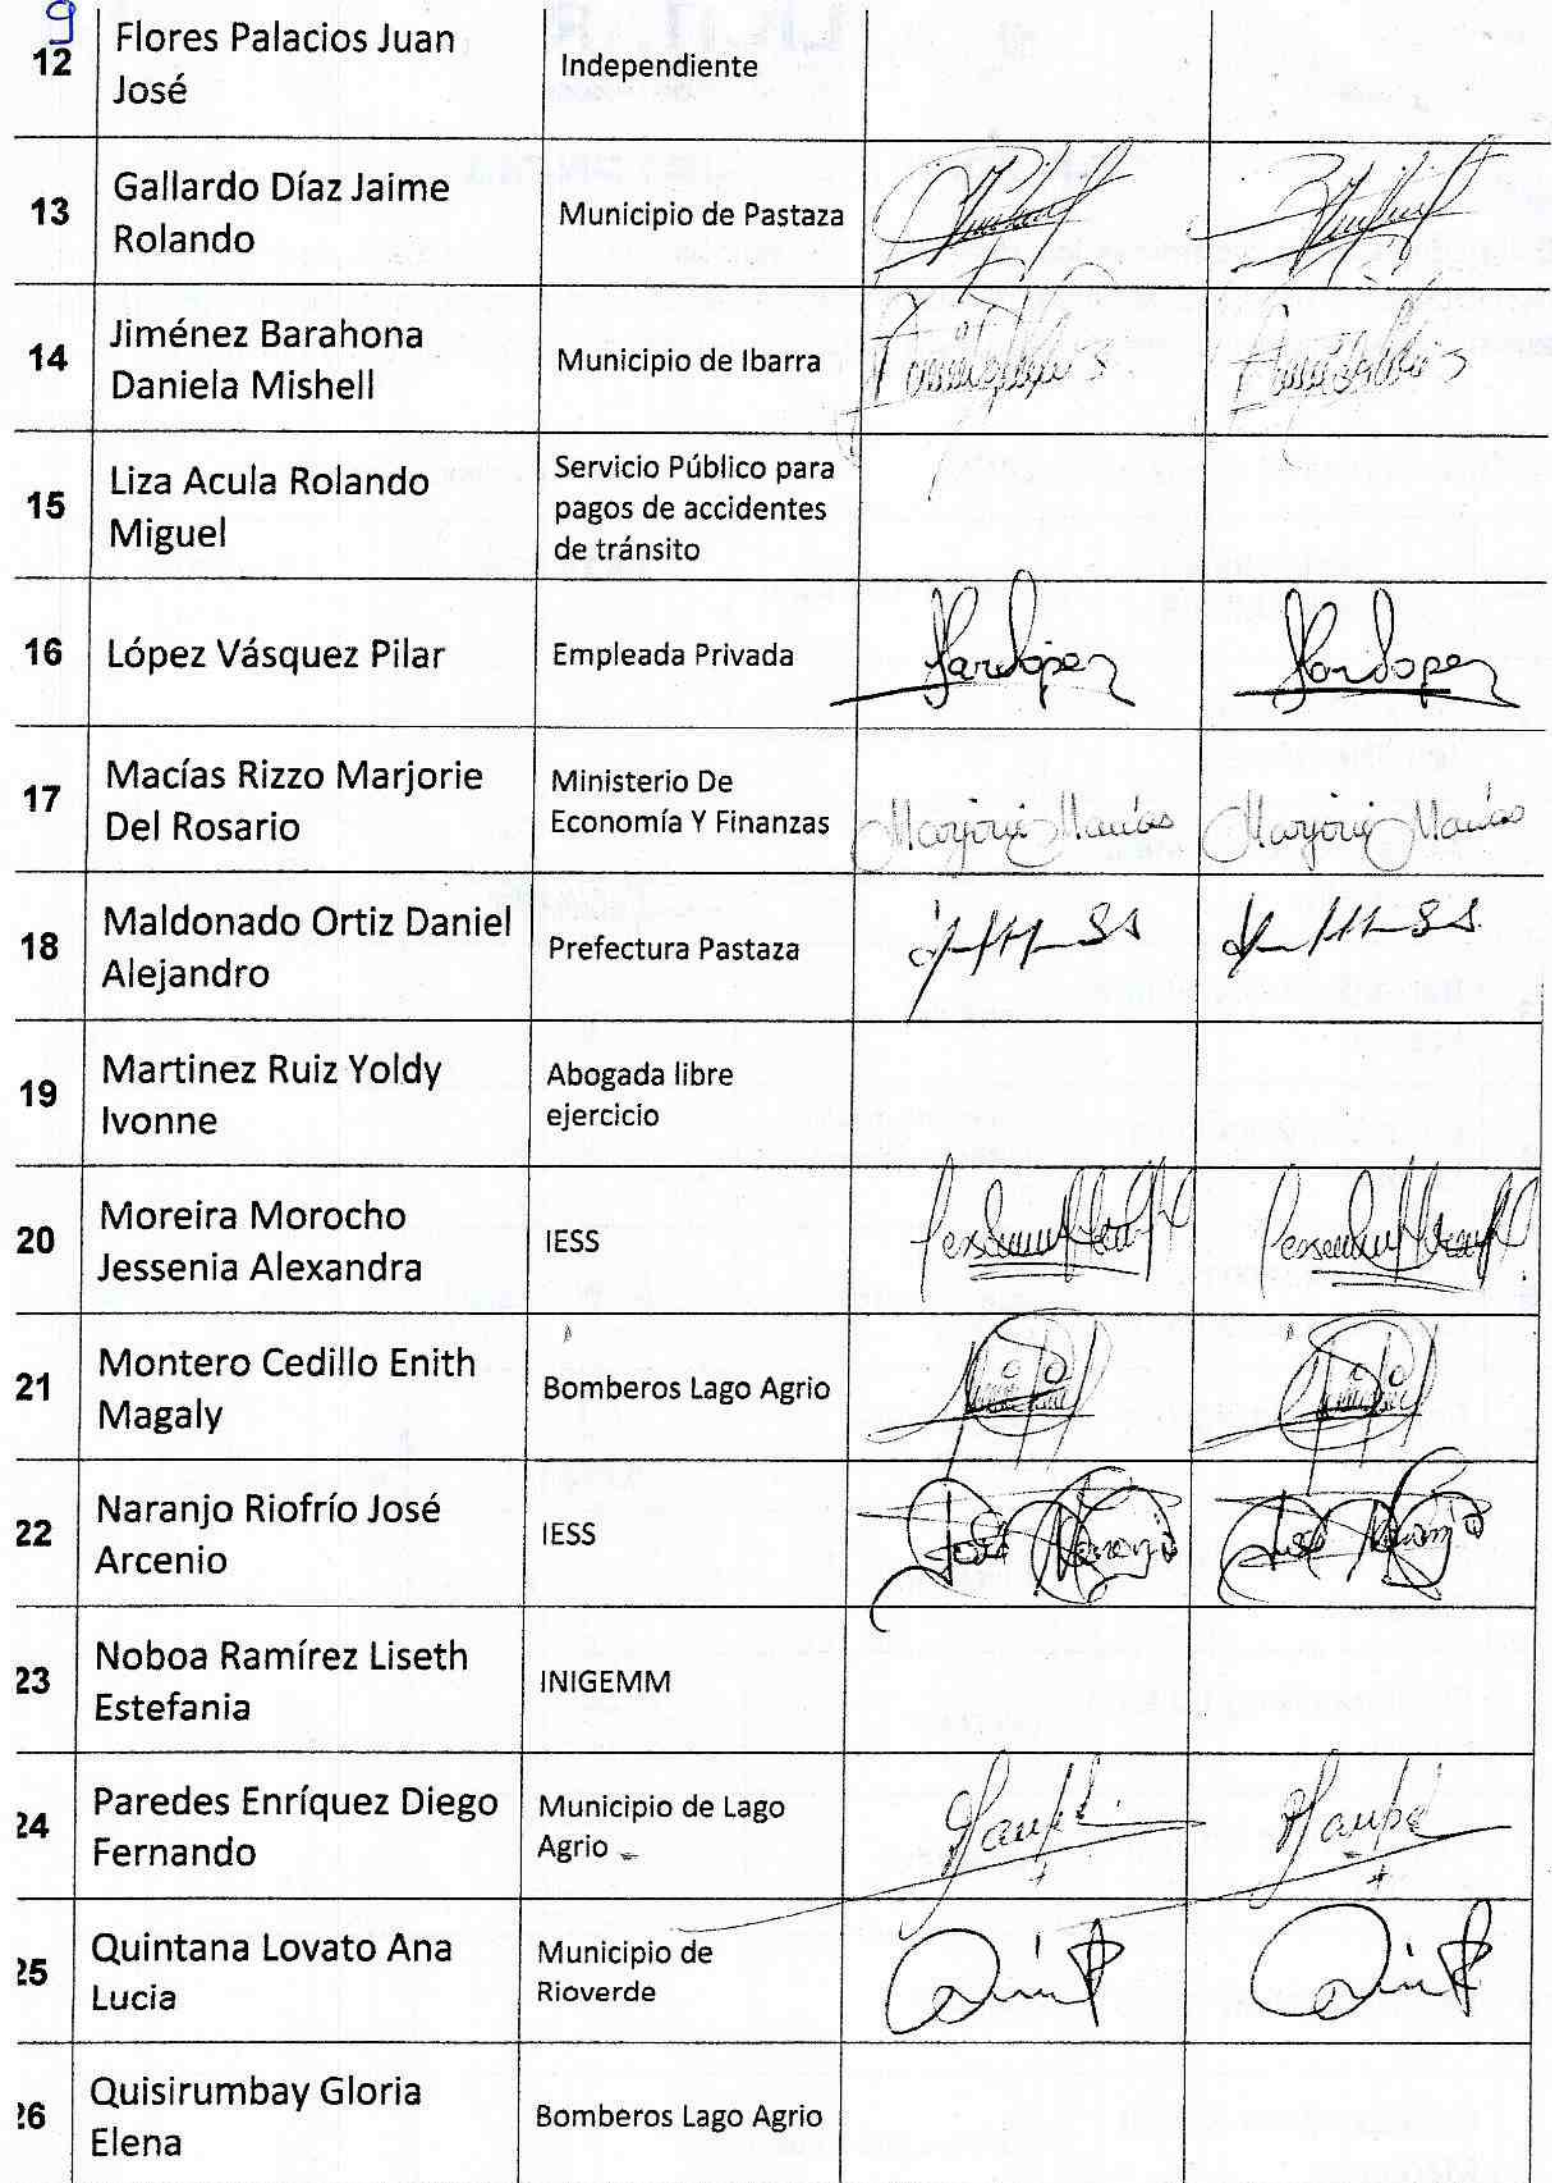 9
12
Flores Palacios Juan
José
Independiente
13
Gallardo Díaz Jaime
Rolando
Municipio de Pastaza
14
Jiménez Barahona
Daniela Mishell
Municipio de Ibarra
15
Liza Acula Rolando
Miguel
Servicio Público para
pagos de accidentes
de tránsito
16
López Vásquez Pilar
Empleada Privada
17
Macías Rizzo Marjorie
Del Rosario
Ministerio De
Economía Y Finanzas
Marjorie Macías
Marjorie Macías
18
Maldonado Ortiz Daniel
Alejandro
Prefectura Pastaza
19
Martinez Ruiz Yoldy
Ivonne
Abogada libre
ejercicio
20
Moreira Morocho
Jessenia Alexandra
IESS
21
Montero Cedillo Enith
Magaly
Bomberos Lago Agrio
22
Naranjo Riofrío José
Arcenio
IESS
José Naranjo
José Naranjo
23
Noboa Ramírez Liseth
Estefania
INIGEMM
24
Paredes Enríquez Diego
Fernando
Municipio de Lago
Agrio
25
Quintana Lovato Ana
Lucia
Municipio de
Rioverde
26
Quisirumbay Gloria
Elena
Bomberos Lago Agrio